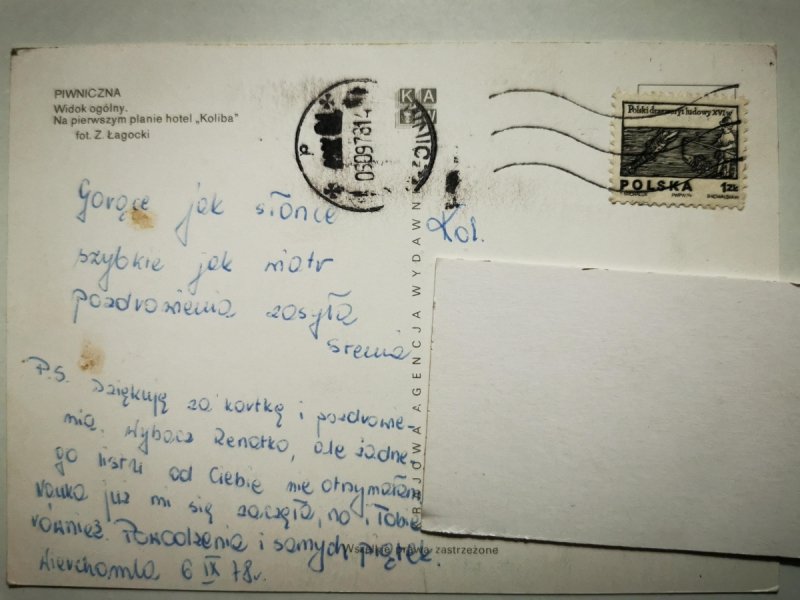 PIWNICZNA
Widok ogólny.
Na pierwszym planie hotel „Koliba”
fot. Z. Łagocki
KAW
060978 14
Polski drzeworyt ludowy XVI w
POLSKA 1zł
Gorące jak słońce
szybkie jak wiatr
pozdrowienia zasyła
Kol.
P.S. Dziękuję za kartkę i pozdrowie-
nia. Wybacz Renatko, ale żadne-
go listu od Ciebie nie otrzymałam
nauka już mi się zaczęła, no i Tobie
również. Powodzenia i samych piątek.
Wierchomla 6 IX 78r.
KRAJOWA AGENCJA WYDAWN
zastrzeżone